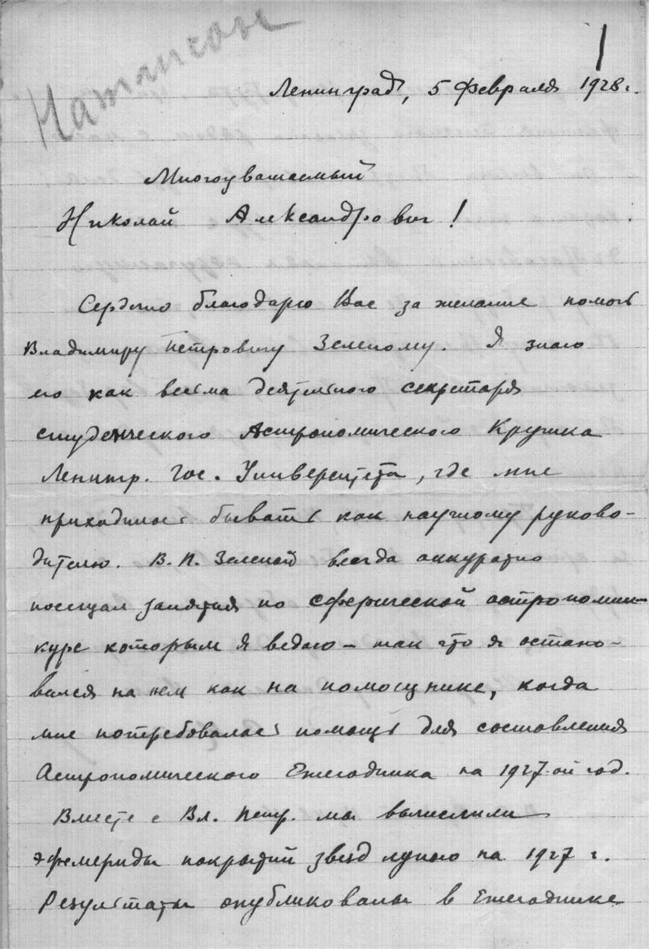 Натансон
1
Ленинград, 5 февраля 1928 г.
Многоуважаемый
Николай Александрович!
Сердечно благодарю Вас за желание помочь
Владимиру Петровичу Зеленому. Я знаю
его как весьма деятельного секретаря
студенческого Астрономического Кружка
Ленингр. Гос. Университета, где мне
приходилось бывать как научному руково-
дителю. В. П. Зеленой всегда аккуратно
посещал занятия по сферической астрономии
курс которым я ведаю – так что я остано-
вился на нем как на помощнике, когда
мне потребовалась помощь для составления
Астрономического Ежегодника на 1927-ой год.
Вместе с Вл. Петр. мы вычислили
эфемериды покрытий звезд луною на 1927 г.
Результаты опубликованы в Ежегоднике